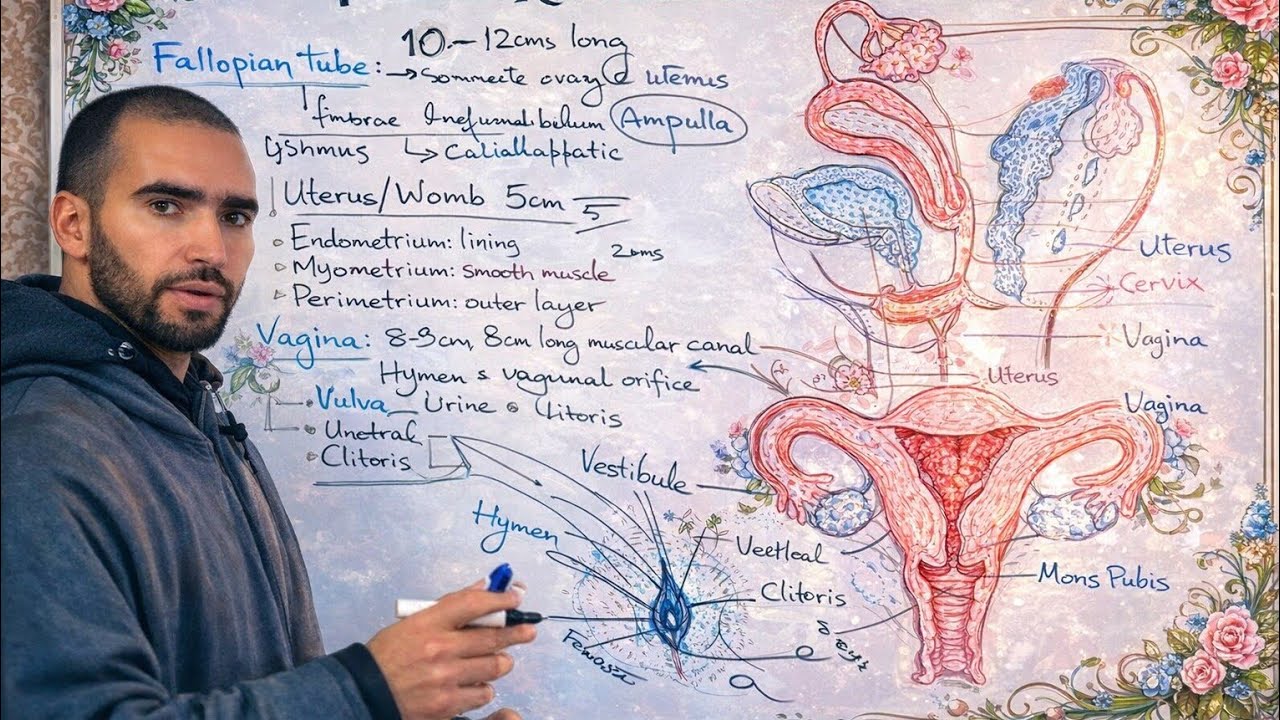 Fallopian tube: 10.-12cms long
→ Sommecte ovary uterus
fimbrae Inefumdibilum Ampulla
Gshmus ↳ Caliallappatic
Uterus/Womb 5cm
5
Endometrium: lining
2cms
Myometrium: smooth muscle
Perimetrium: outer layer
Vagina: 8-9cm, 8cm long muscular canal
Hymen s vagunal orifice
Vulva Urine Clitoris
Unetral
Clitoris
Hymen
Vestibule
Veetleal
Clitoris
Uterus
Cervix
Vagina
Uterus
Vagina
Mons Pubis
a